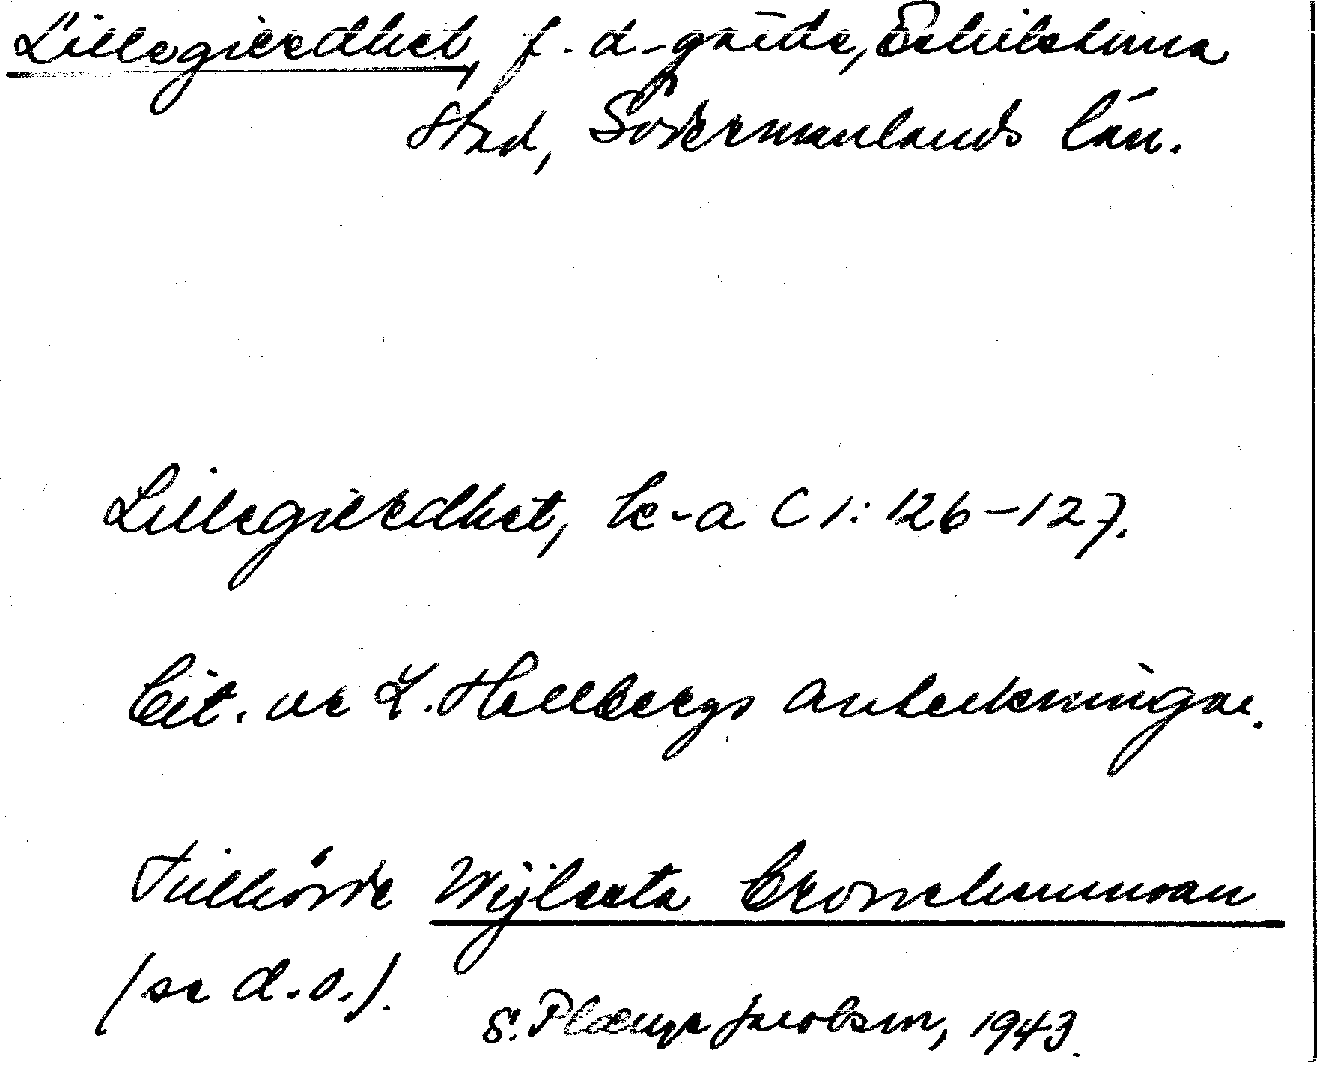 Lillegierdhet, f. d. gärde, Eskilstuna
stad, Södermanlands län.
Lillegierdhet, k-a C 1: 126-127.
Cit. ur L. Hellbergs anteckningar.
Tillhörde Wijlasta
(se d.o.).
S. Plænge Jacobson, 1943.